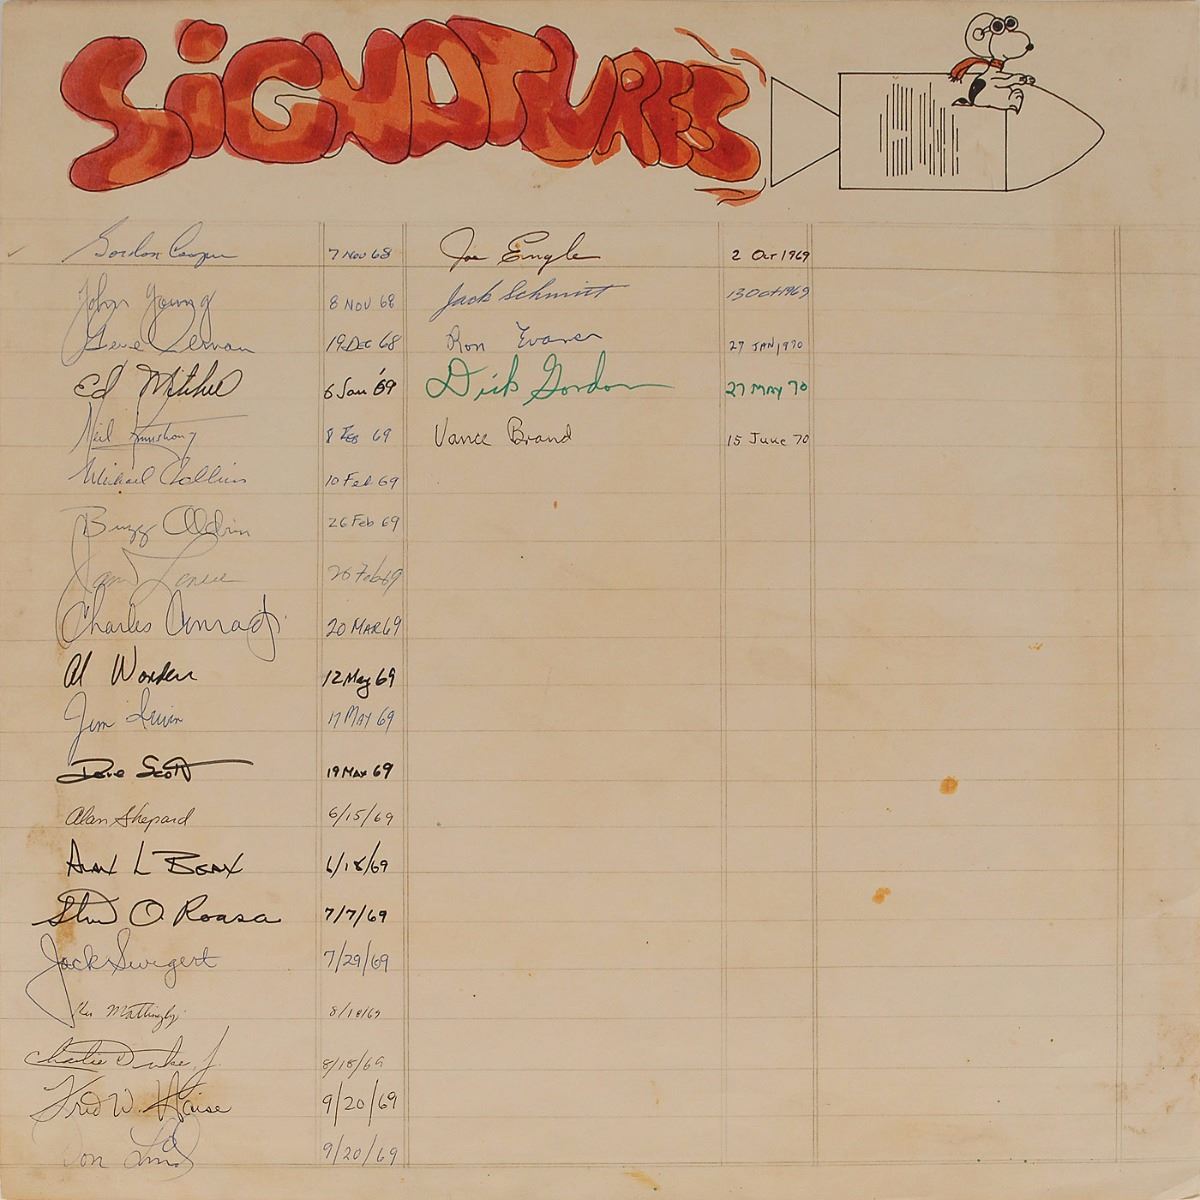 SIGNATURES
Gordon Cooper 7 Nov 68
John Young 8 NOV 68
Gene Cernan 19 DEC 68
Ed Mitchell 6 Jan '69
Neil Armstrong 8 FEB 69
Michael Collins 10 Feb 69
Buzz Aldrin 26 Feb 69
James Lovell 26 Feb 69
Charles Conrad Jr. 20 MAR 69
Al Worden 12 May 69
Jim Irwin 17 MAY 69
Dave Scott 19 MAY 69
Alan Shepard 6/15/69
Alan L Bean 6/18/69
Stuart A. Roosa 7/7/69
Jack Swigert 7/29/69
Ken Mattingly 8/18/69
Charlie Duke Jr. 8/18/69
Fred W. Haise 9/20/69
Don Lind 9/20/69
Joe Engle 2 Oct 1969
Jack Schmitt 13 Oct 1969
Ron Evans 27 JAN, 1970
Dick Gordon 27 MAY 70
Vance Brand 15 June 70